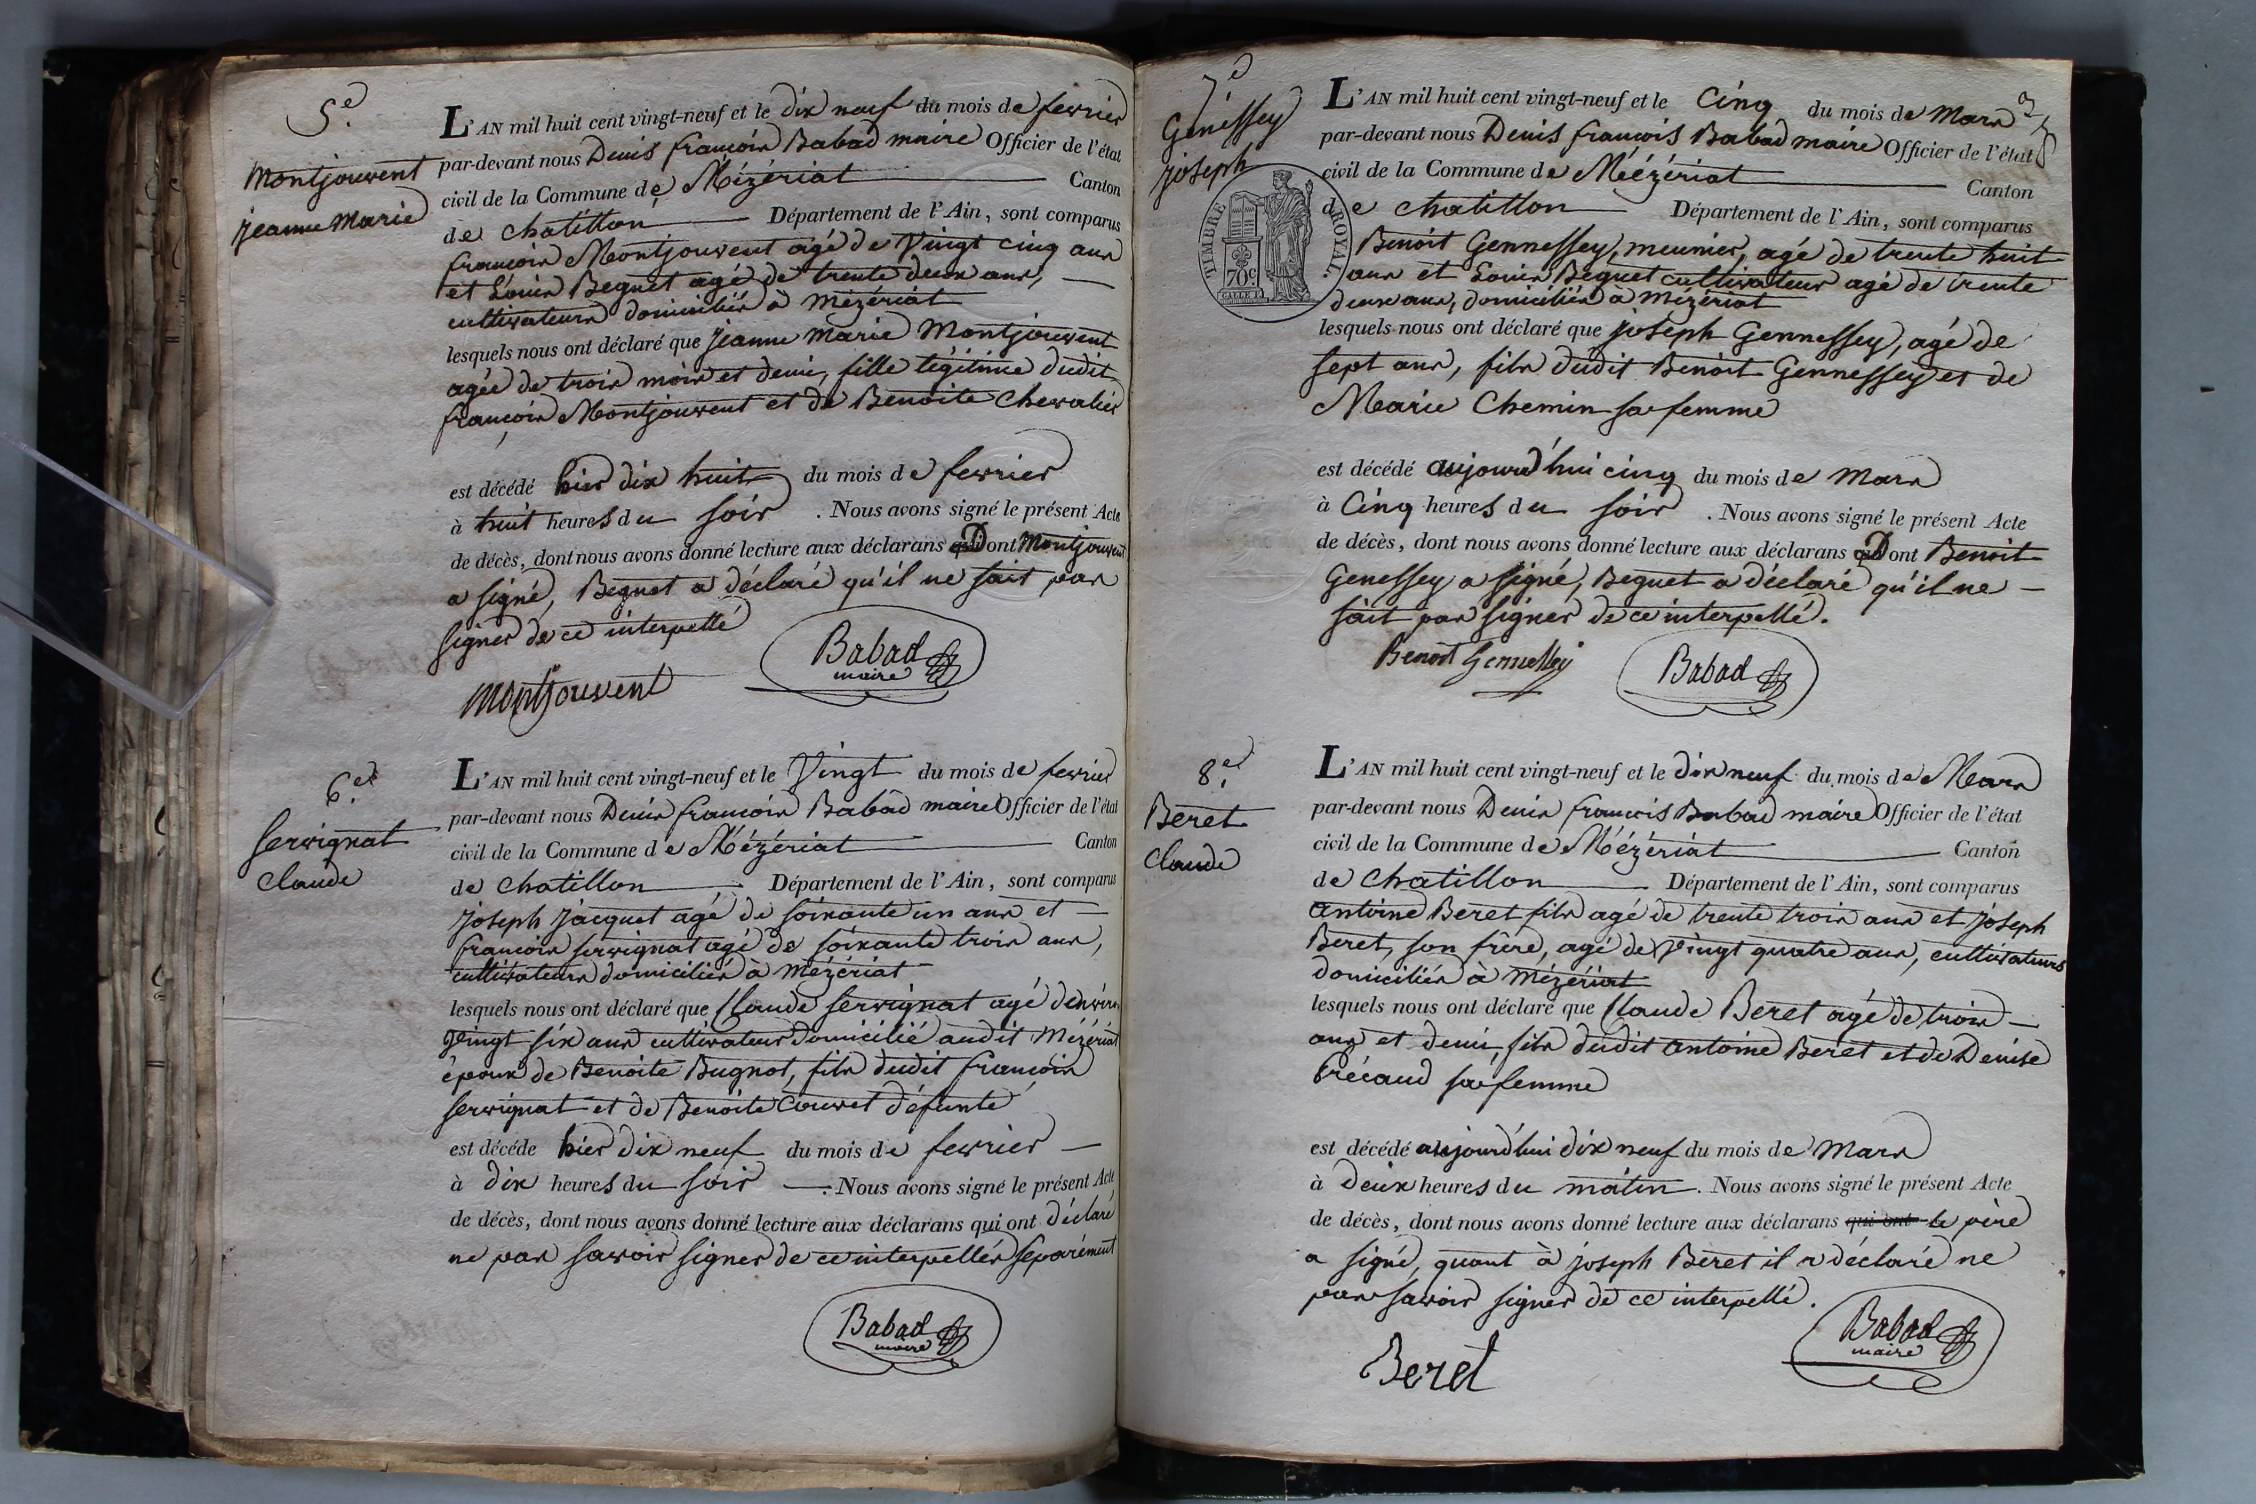 5e.
Montjouvent
jeanne Marie
L'AN mil huit cent vingt-neuf et le dix neuf du mois de fevrier
par-devant nous Denis françois Babad maire Officier de l'état
civil de la Commune de Mézériat Canton
de chatillon Département de l'Ain, sont comparus
françois Montjouvent agé de Vingt cinq ans
et Louis Beguet agé de trente deux ans,
cultivateurs domiciliés à Mézériat
lesquels nous ont déclaré que jeanne Marie Montjouvent
agée de trois mois et demi, fille légitime dudit
françois Montjouvent et de Benoite Chevalier
est décédé hier dix huit du mois de fevrier
à huit heures du soir. Nous avons signé le présent Acte
de décès, dont nous avons donné lecture aux déclarans Dont Montjouvent
a signé, Beguet a déclaré qu'il ne sait pas
signer de ce interpellé
Montjouvent
Babad
maire
6e.
Servignat
Claude
L'AN mil huit cent vingt-neuf et le Vingt du mois de fevrier
par-devant nous Denis françois Babad maire Officier de l'état
civil de la Commune de Mézériat Canton
de Chatillon Département de l'Ain, sont comparus
joseph jacquet agé de soixante un ans et
françois servignat agé de soixante trois ans,
cultivateurs domiciliés à Mézériat
lesquels nous ont déclaré que Claude Servignat agé d'environ
Vingt six ans cultivateur domicilié audit Mézériat
époux de Benoite Bugnot, fils dudit françois
servignat et de Benoite Couvet défunte
est décéde hier dix neuf du mois de fevrier
à dix heures du soir. Nous avons signé le présent Acte
de décès, dont nous avons donné lecture aux déclarans qui ont déclaré
ne pas savoir signer de ce interpellés séparément
Babad
maire
7e
Genessey
joseph
TIMBRE ROYAL.
70c
L'AN mil huit cent vingt-neuf et le Cinq du mois de Mars
par-devant nous Denis françois Babad maire Officier de l'état
civil de la Commune de Méézériat Canton
de chatillon Département de l'Ain, sont comparus
Benoit Gennessey, meunier, agé de trente huit
ans et Louis Beguet cultivateur agé de trente
deux ans, domiciliés à Mézériat
lesquels nous ont déclaré que joseph Gennessey, agé de
sept ans, fils dudit Benoit Gennessey et de
Marie Chemin sa femme
est décédé aujourd'hui cinq du mois de Mars
à Cinq heures du soir. Nous avons signé le présent Acte
de décès, dont nous avons donné lecture aux déclarans Dont Benoit
Genessey a signé, Beguet a déclaré qu'il ne
sait pas signer de ce interpellé.
Benoit Gennessey
Babad
8e.
Beret
Claude
L'AN mil huit cent vingt-neuf et le dix neuf du mois de Mars
par-devant nous Denis françois Babad maire Officier de l'état
civil de la Commune de Mézériat Canton
de Chatillon Département de l'Ain, sont comparus
antoine Beret fils agé de trente trois ans et joseph
Beret, son frère, agé de Vingt quatre ans, cultivateurs
domiciliés à Mézériat
lesquels nous ont déclaré que Claude Beret agé de trois
ans et demi, fils dudit antoine Beret et de Denise
Précaud sa femme
est décédé aujourd'hui dix neuf du mois de Mars
à Deux heures du matin. Nous avons signé le présent Acte
de décès, dont nous avons donné lecture aux déclarans qui ont le père
a signé, quant à joseph Beret il a déclaré ne
pas savoir signer de ce interpellé.
Beret
Babad
maire